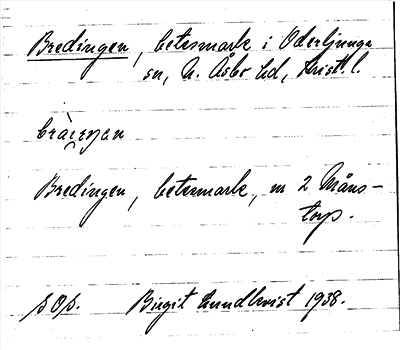 Bredingen, betesmark i Oderljunga
sn, N. Åsbo hd, Krist. l.
Bredingen, betesmark, nr 2 Måns-
torp.
sop. Birgit Lundkvist 1938.